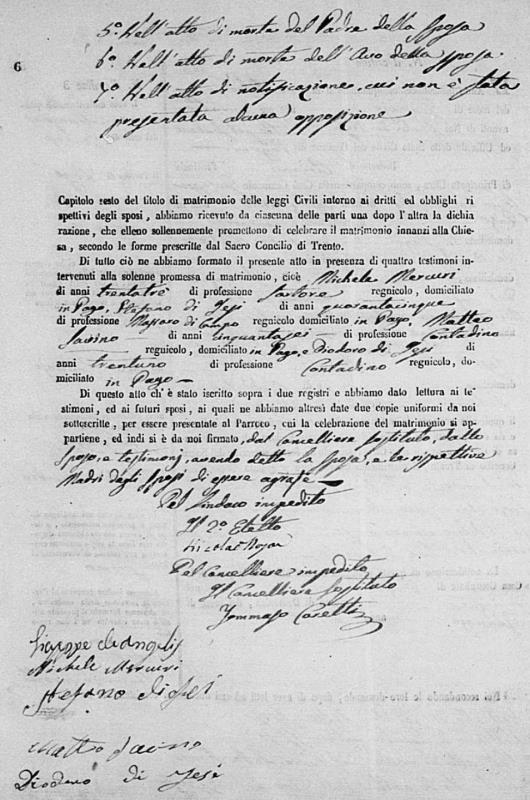 5º Nell'atto di morte del Padre della sposa
6º Nell'atto di morte dell'Avo della sposa.
6
7º Nell'atto di notificazione, cui non è stata
presentata alcuna opposizione
Capitolo sesto del titolo di matrimonio delle leggi Civili intorno ai dritti ed obblighi ri
spettivi degli sposi, abbiamo ricevuto da ciascuna delle parti una dopo l'altra la dichia
razione, che elleno sollennemente promettono di celebrare il matrimonio innanzi alla Chie-
sa, secondo le forme prescritte dal Sacro Concilio di Trento.
Di tutto ciò ne abbiamo formato il presente atto in presenza di quattro testimoni
intervenuti alla solenne promessa di matrimonio, cioè Michele Mercuri
di anni trentatrè di professione Sartore regnicolo, domiciliato
in Pago, Stefano di Jesi di anni quarantacinque
di professione Massaro di Campo regnicolo domiciliato in Pago Matteo
Iavino di anni Cinquantasei di professione Contadino
regnicolo, domiciliato in Pago, e Diodoro di Jesi di
anni trentuno di professione Contadino regnicolo, do-
miciliato in Pago
Di questo atto ch'è stato iscritto sopra i due registri e abbiamo dato lettura ai te-
stimoni, ed ai futuri sposi, ai quali ne abbiamo altresì date due copie uniformi da noi
sottoscritte, per essere presentate al Parroco, cui la celebrazione del matrimonio si ap-
partiene, ed indi si è da noi firmato, dal Cancelliere sostituto, dallo
sposo, e testimonj, avendo detto la sposa, e le rispettive
Madri degli sposi di essere agrafe
Pel Sindaco impedito
Il 2º Eletto
Nicola
Pel Cancelliere impedito
Il Cancelliere Sostituto
Tommaso Caretti
Giuseppe de Angelis
Michele Mercuri
Stefano di Jesi
Matteo Iavino
Diodoro di Jesi